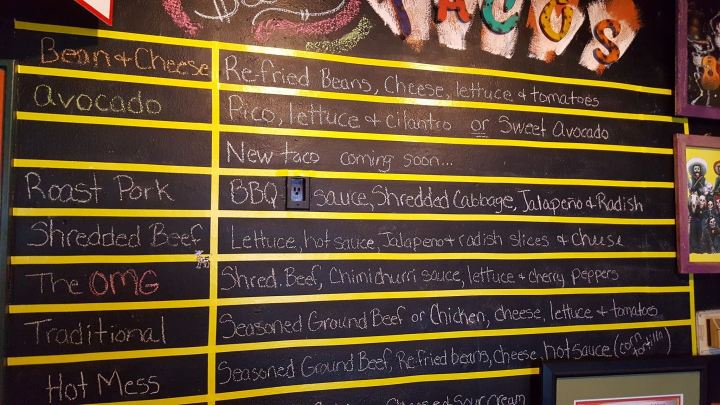 TACOS
Bean & Cheese Re-fried Beans, Cheese, lettuce & tomatoes
Avocado Pico, lettuce & cilantro or Sweet Avocado
New taco coming soon...
Roast Pork BBQ sauce, Shredded Cabbage, Jalapeño & Radish
Shredded Beef Lettuce, hot sauce, Jalapeno & radish slices & cheese
The OMG Shred. Beef, Chimichurri sauce, lettuce & cherry peppers
Traditional Seasoned Ground Beef or Chicken, cheese, lettuce & tomatoes
Hot Mess Seasoned Ground Beef, Re-fried beans, cheese, hot sauce (corn tortilla)
Sour cream